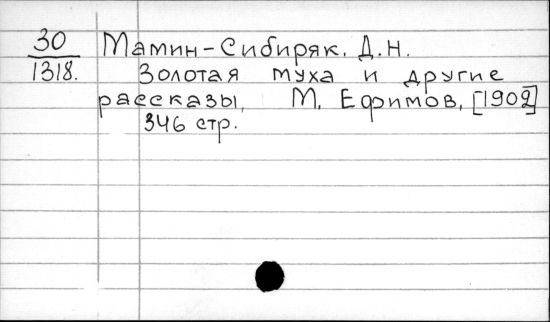 30
1318.
Мамин-Сибиряк, Д.Н.
Золотая муха и другие
рассказы, М. Ефимов, [1902]
346 стр.